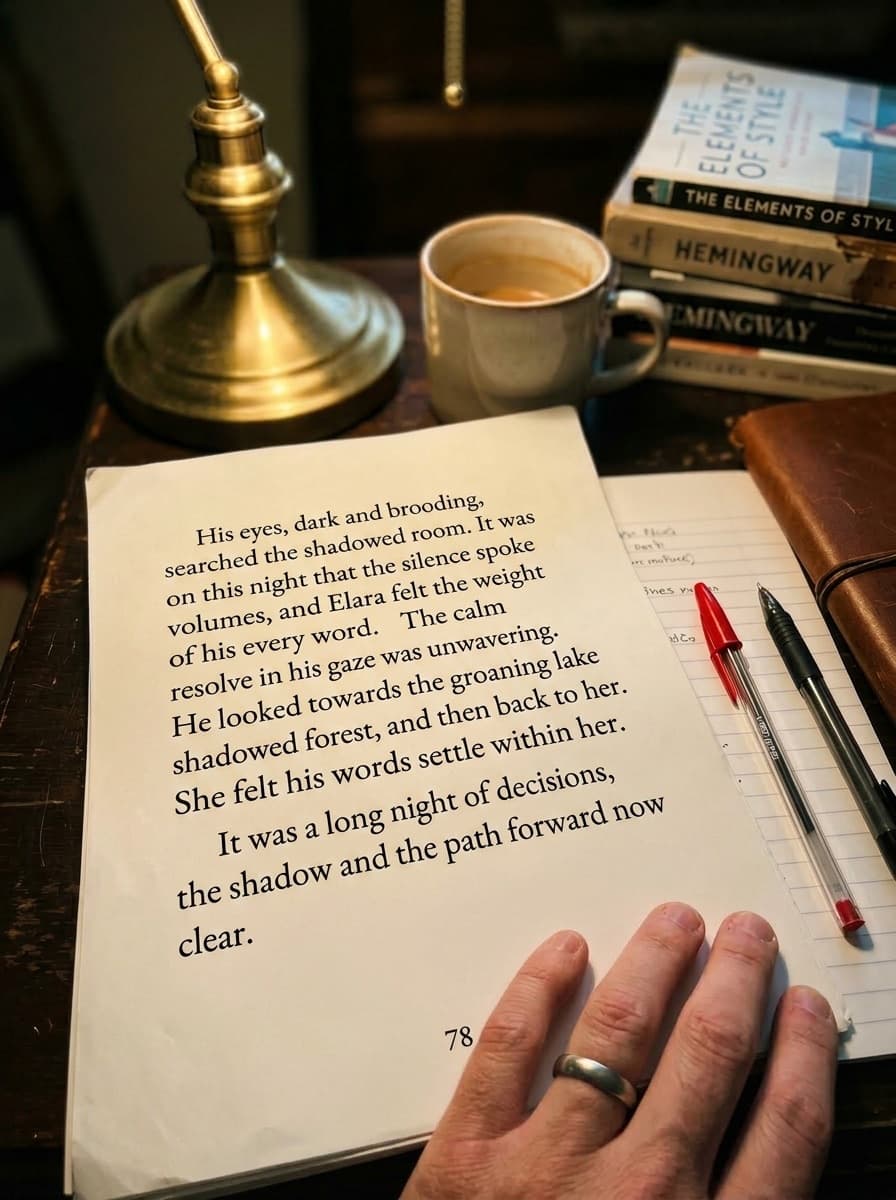 THE
ELEMENTS
OF STYLE
THE ELEMENTS OF STYL
HEMINGWAY
EMINGWAY
His eyes, dark and brooding,
searched the shadowed room. It was
on this night that the silence spoke
volumes, and Elara felt the weight
of his every word.   The calm
resolve in his gaze was unwavering.
He looked towards the groaning lake
shadowed forest, and then back to her.
She felt his words settle within her.
It was a long night of decisions,
the shadow and the path forward now
clear.
78